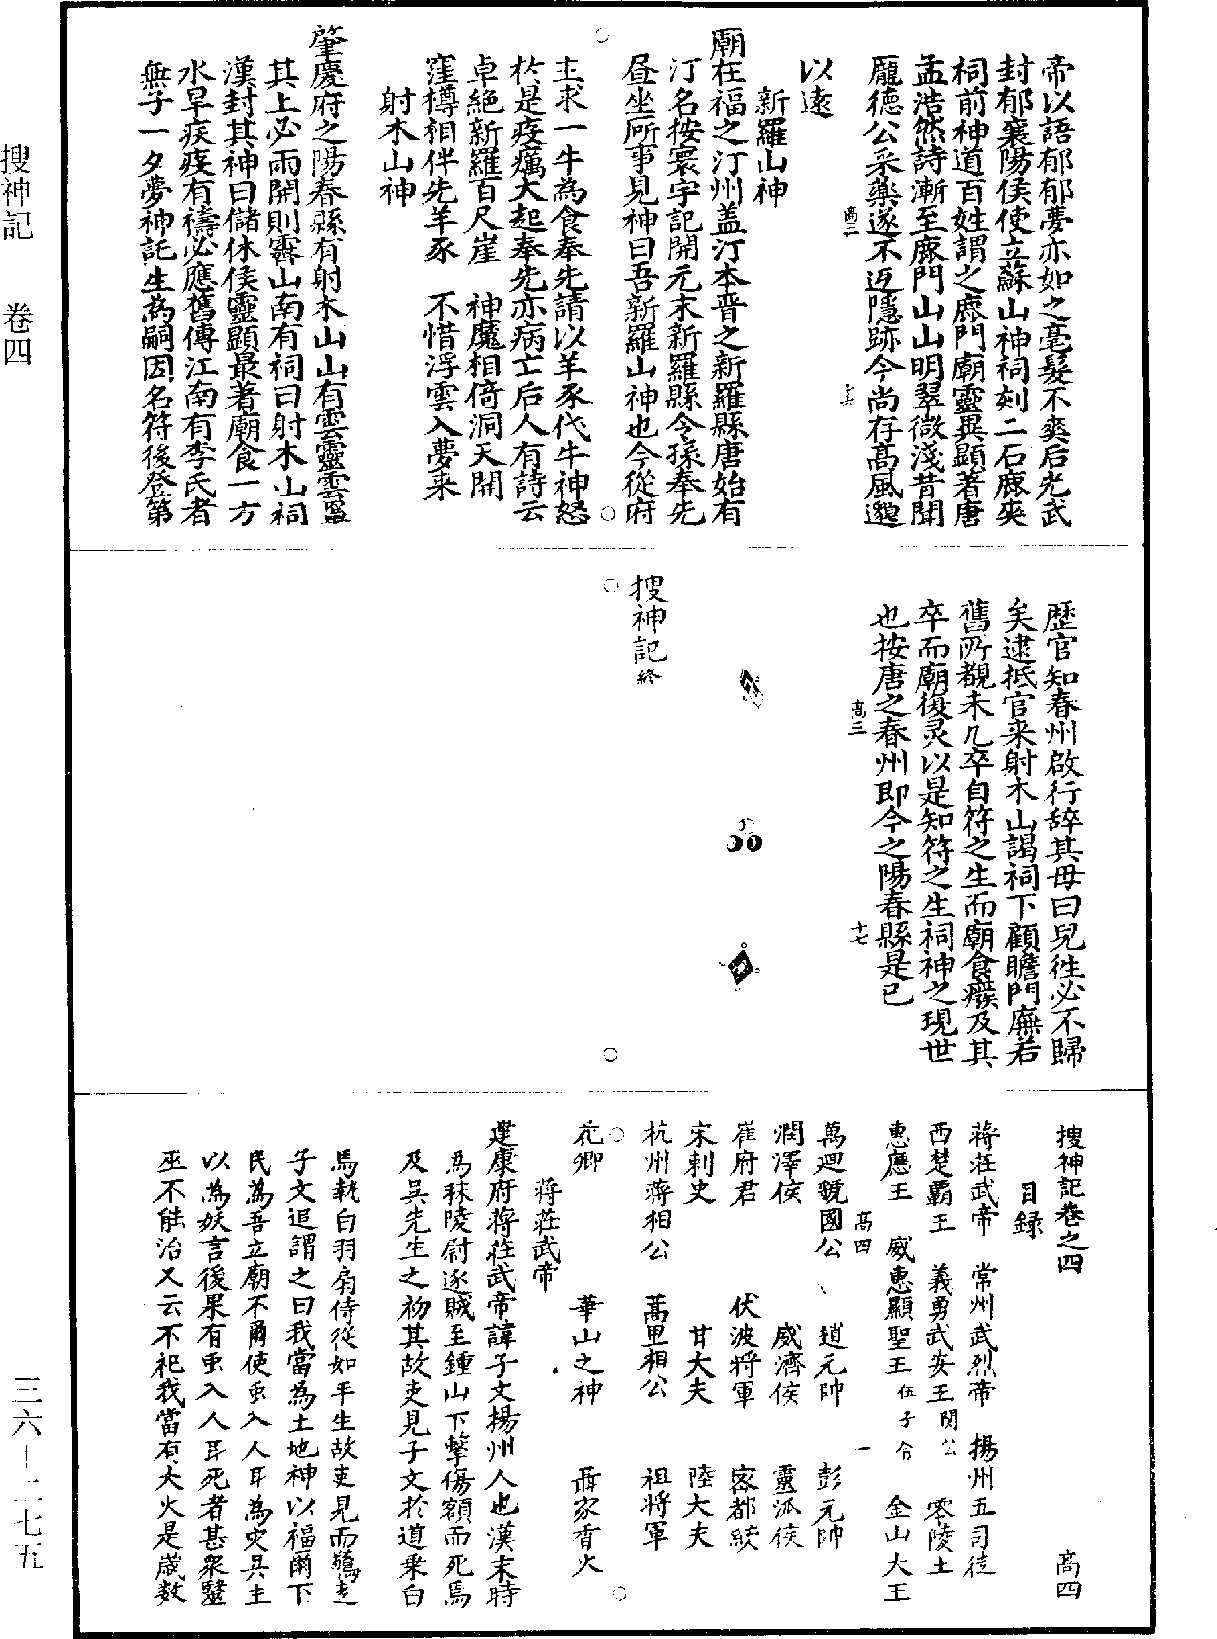 帝以語郁郁夢亦如之毫髮不爽后光武
封郁襄陽侯使立蘇山神祠刻二石鹿夾
祠前神道百姓謂之鹿門廟靈異顯著唐
孟浩然詩漸至鹿門山山明翠微淺昔聞
龐德公采藥遂不返隱跡今尚存高風邈
高三
十六
以遠
新羅山神
廟在福之汀州盖汀本晋之新羅縣唐始有
汀名按寰宇記開元末新羅縣令孫奉先
昼坐㕔事見神曰吾新羅山神也今從府
主求一牛為食奉先請以羊豕代牛神怒
於是疫癘大起奉先亦病亡后人有詩云
卓絶新羅百尺崖 神魔相倚洞天開
窪樽相伴先羊豕 不惜浮雲入夢来
射木山神
肇慶府之陽春縣有射木山山有雲靈雲冪
其上必雨開則霽山南有祠曰射木山祠
漢封其神曰儲休侯靈顯最著廟食一方
水旱疾疫有禱必應舊傳江南有李氏者
無子一夕夢神託生為嗣因名符後登第
歷官知春州啟行辞其母曰兒徃必不歸
矣逮抵官来射木山謁祠下顧瞻門廡若
舊所覩未几卒自符之生而廟食癈及其
卒而廟復灵以是知符之生祠神之現世
也按唐之春州即今之陽春縣是已
高三
十七
搜神記終
搜神記卷之四
高四
目錄
蔣莊武帝 常州武烈帝 揚州五司徒
西楚覇王 義勇武安王関公 零陵王
惠應王 威惠顯聖王伍子胥 金山大王
高四
一
萬迴虢國公 趙元帥 彭元帥
潤澤侯 威濟侯 靈派侯
崔府君 伏波將軍 密都統
宋刺史 甘大夫 陸大夫
杭州蔣相公 蒿里相公 祖將軍
花卿 華山之神 聶家香火
蔣莊武帝
建康府蔣莊武帝諱子文揚州人也漢末時
為秣陵尉逐賊至鍾山下擊傷額而死焉
及吳先生之初其故吏見子文於道乗白
馬執白羽扇侍從如平生故吏見而驚走
子文追謂之曰我當為土地神以福爾下
民為吾立廟不爾使虫入人耳為災吳主
以為妖言後果有虫入人耳死者甚衆醫
巫不能治又云不祀我當有大火是歳数
搜神記 卷四
三六—二七五